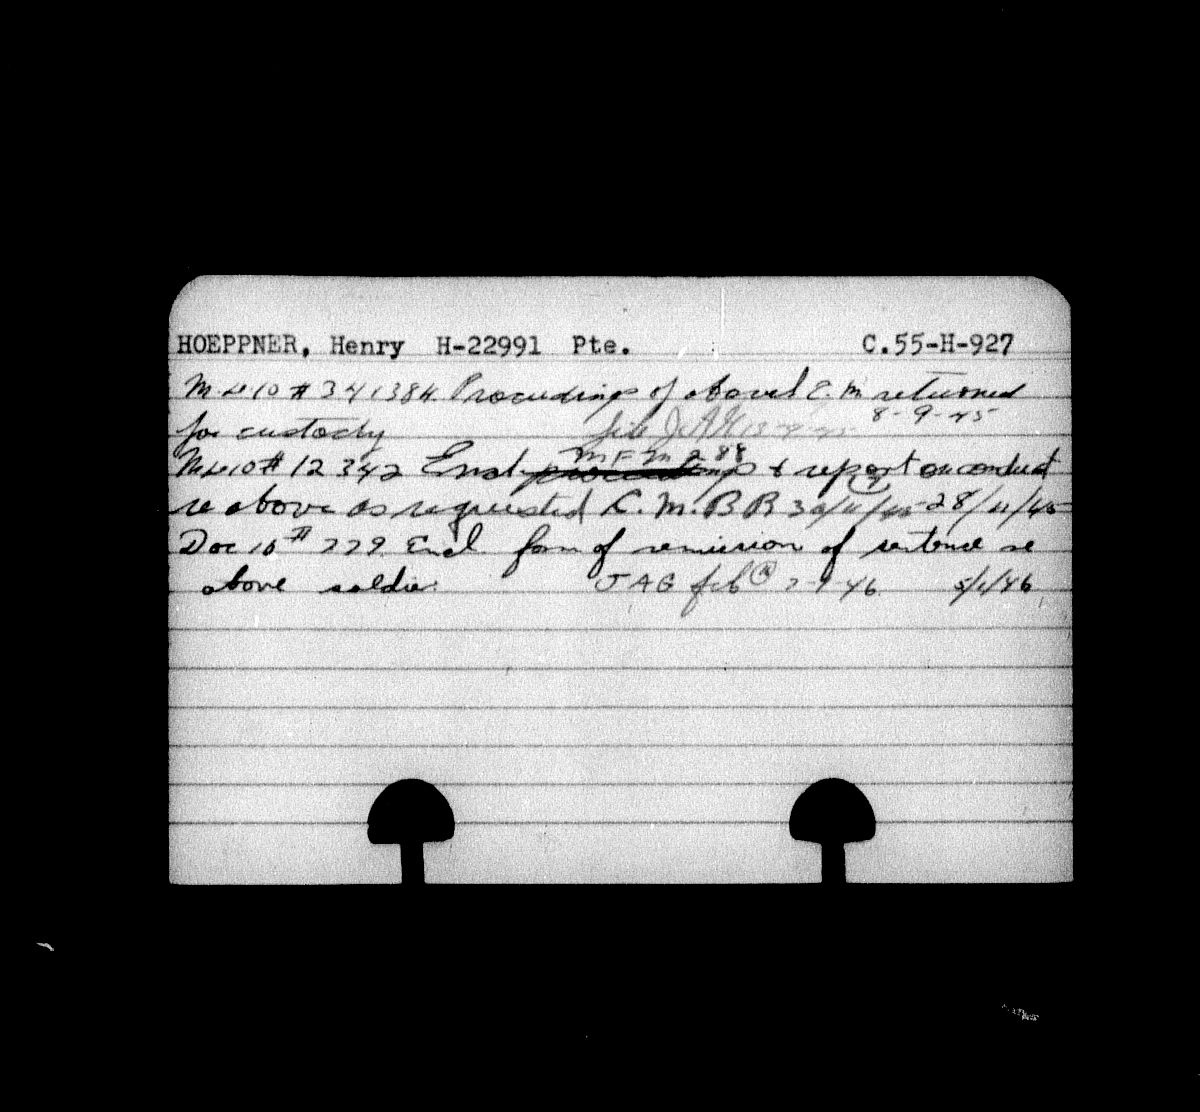 HOEPPNER, Henry H-22991 Pte. C.55-H-927
10 # 341384. Proceedings of above C.M. returned
8-9-45
for custody file JAG
MFM 288
10 # 12342 Encl & report on conduct
re above as requested C.M.B R 28/11/45
Doc 10 # 229. Encl. form of remission of sentence re
above soldier. JAG feb 7-1-46 5/1/46